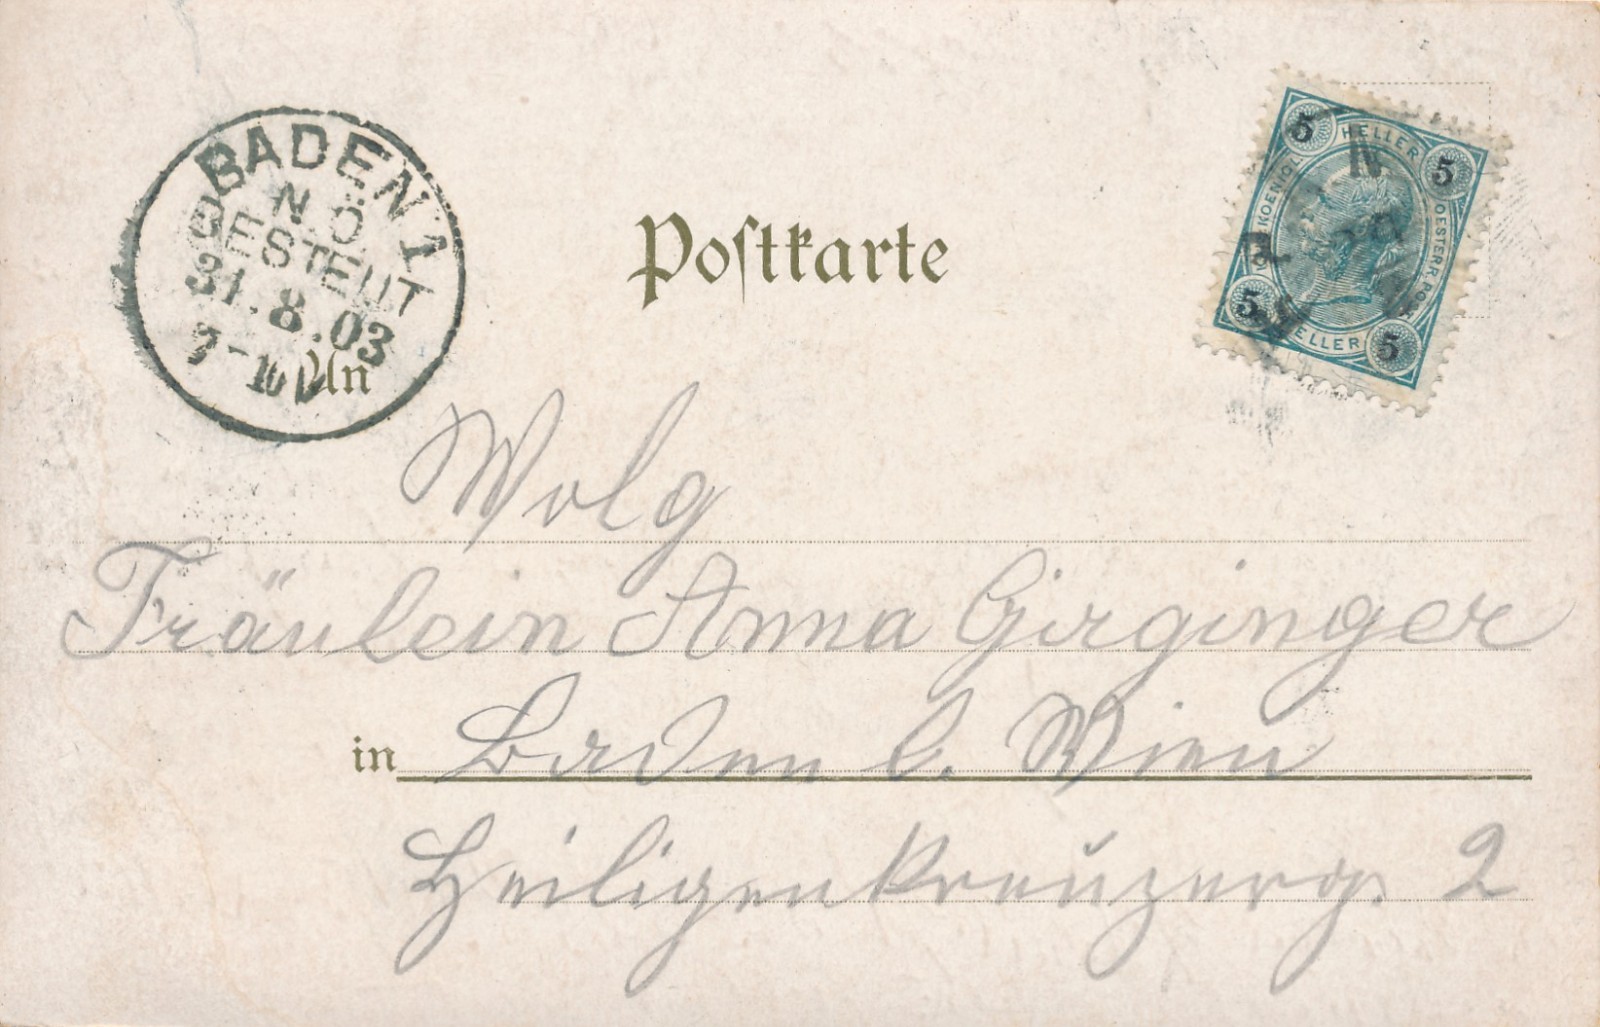 BADEN 1
N.Ö.
BESTELLT
31.8.03
7-10V
Postkarte
5 HELLER 5
KOENIGL. OESTERR. POST
5 HELLER 5
An
Wolg
Fräulein Anna Girginger
in Baden b. Wien
Heiligenkreuzerg. 2